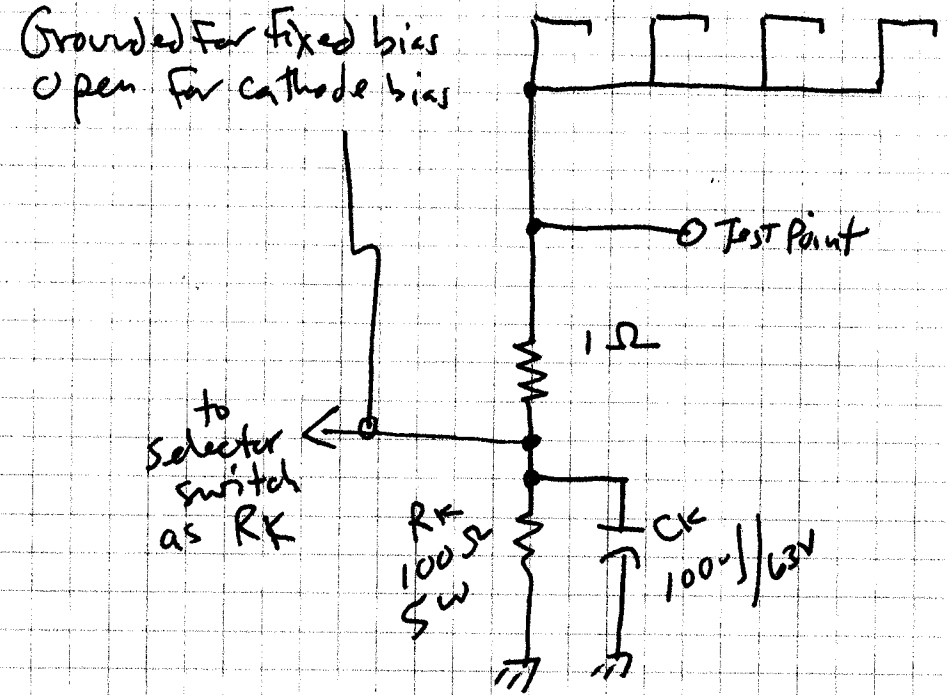 Grounded For fixed bias
Open For cathode bias
Test Point
1 Ω
to
selector
switch
as RK
RK
100Ω
5W
CK
100uf/63V